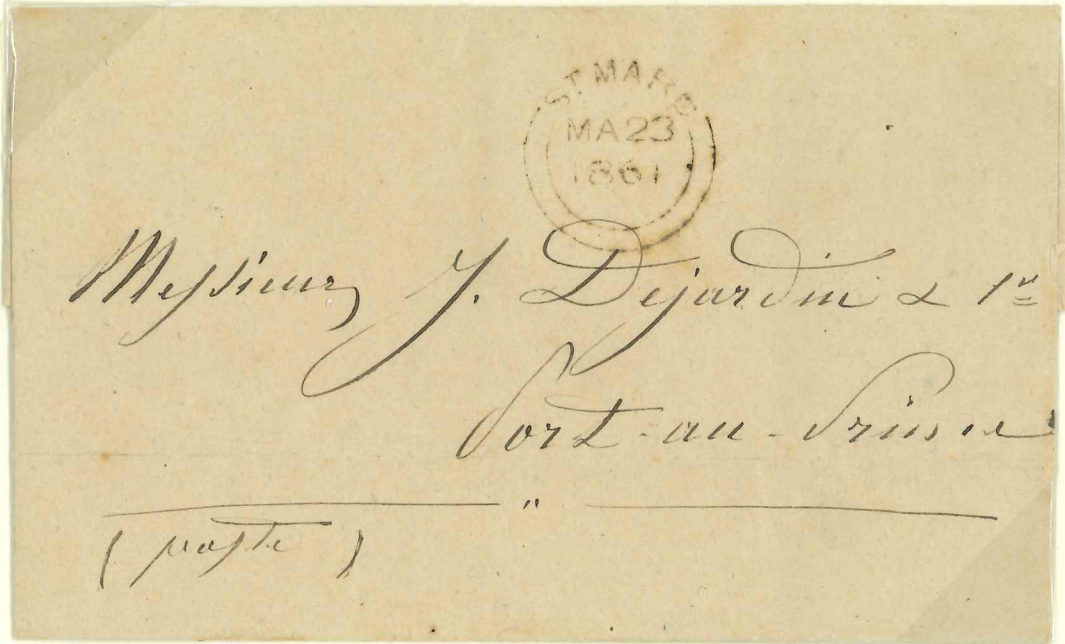 ST MARC
MA 23
1861
Messieurs J. Dejardin &
Port-au-Prince
"
( poste )